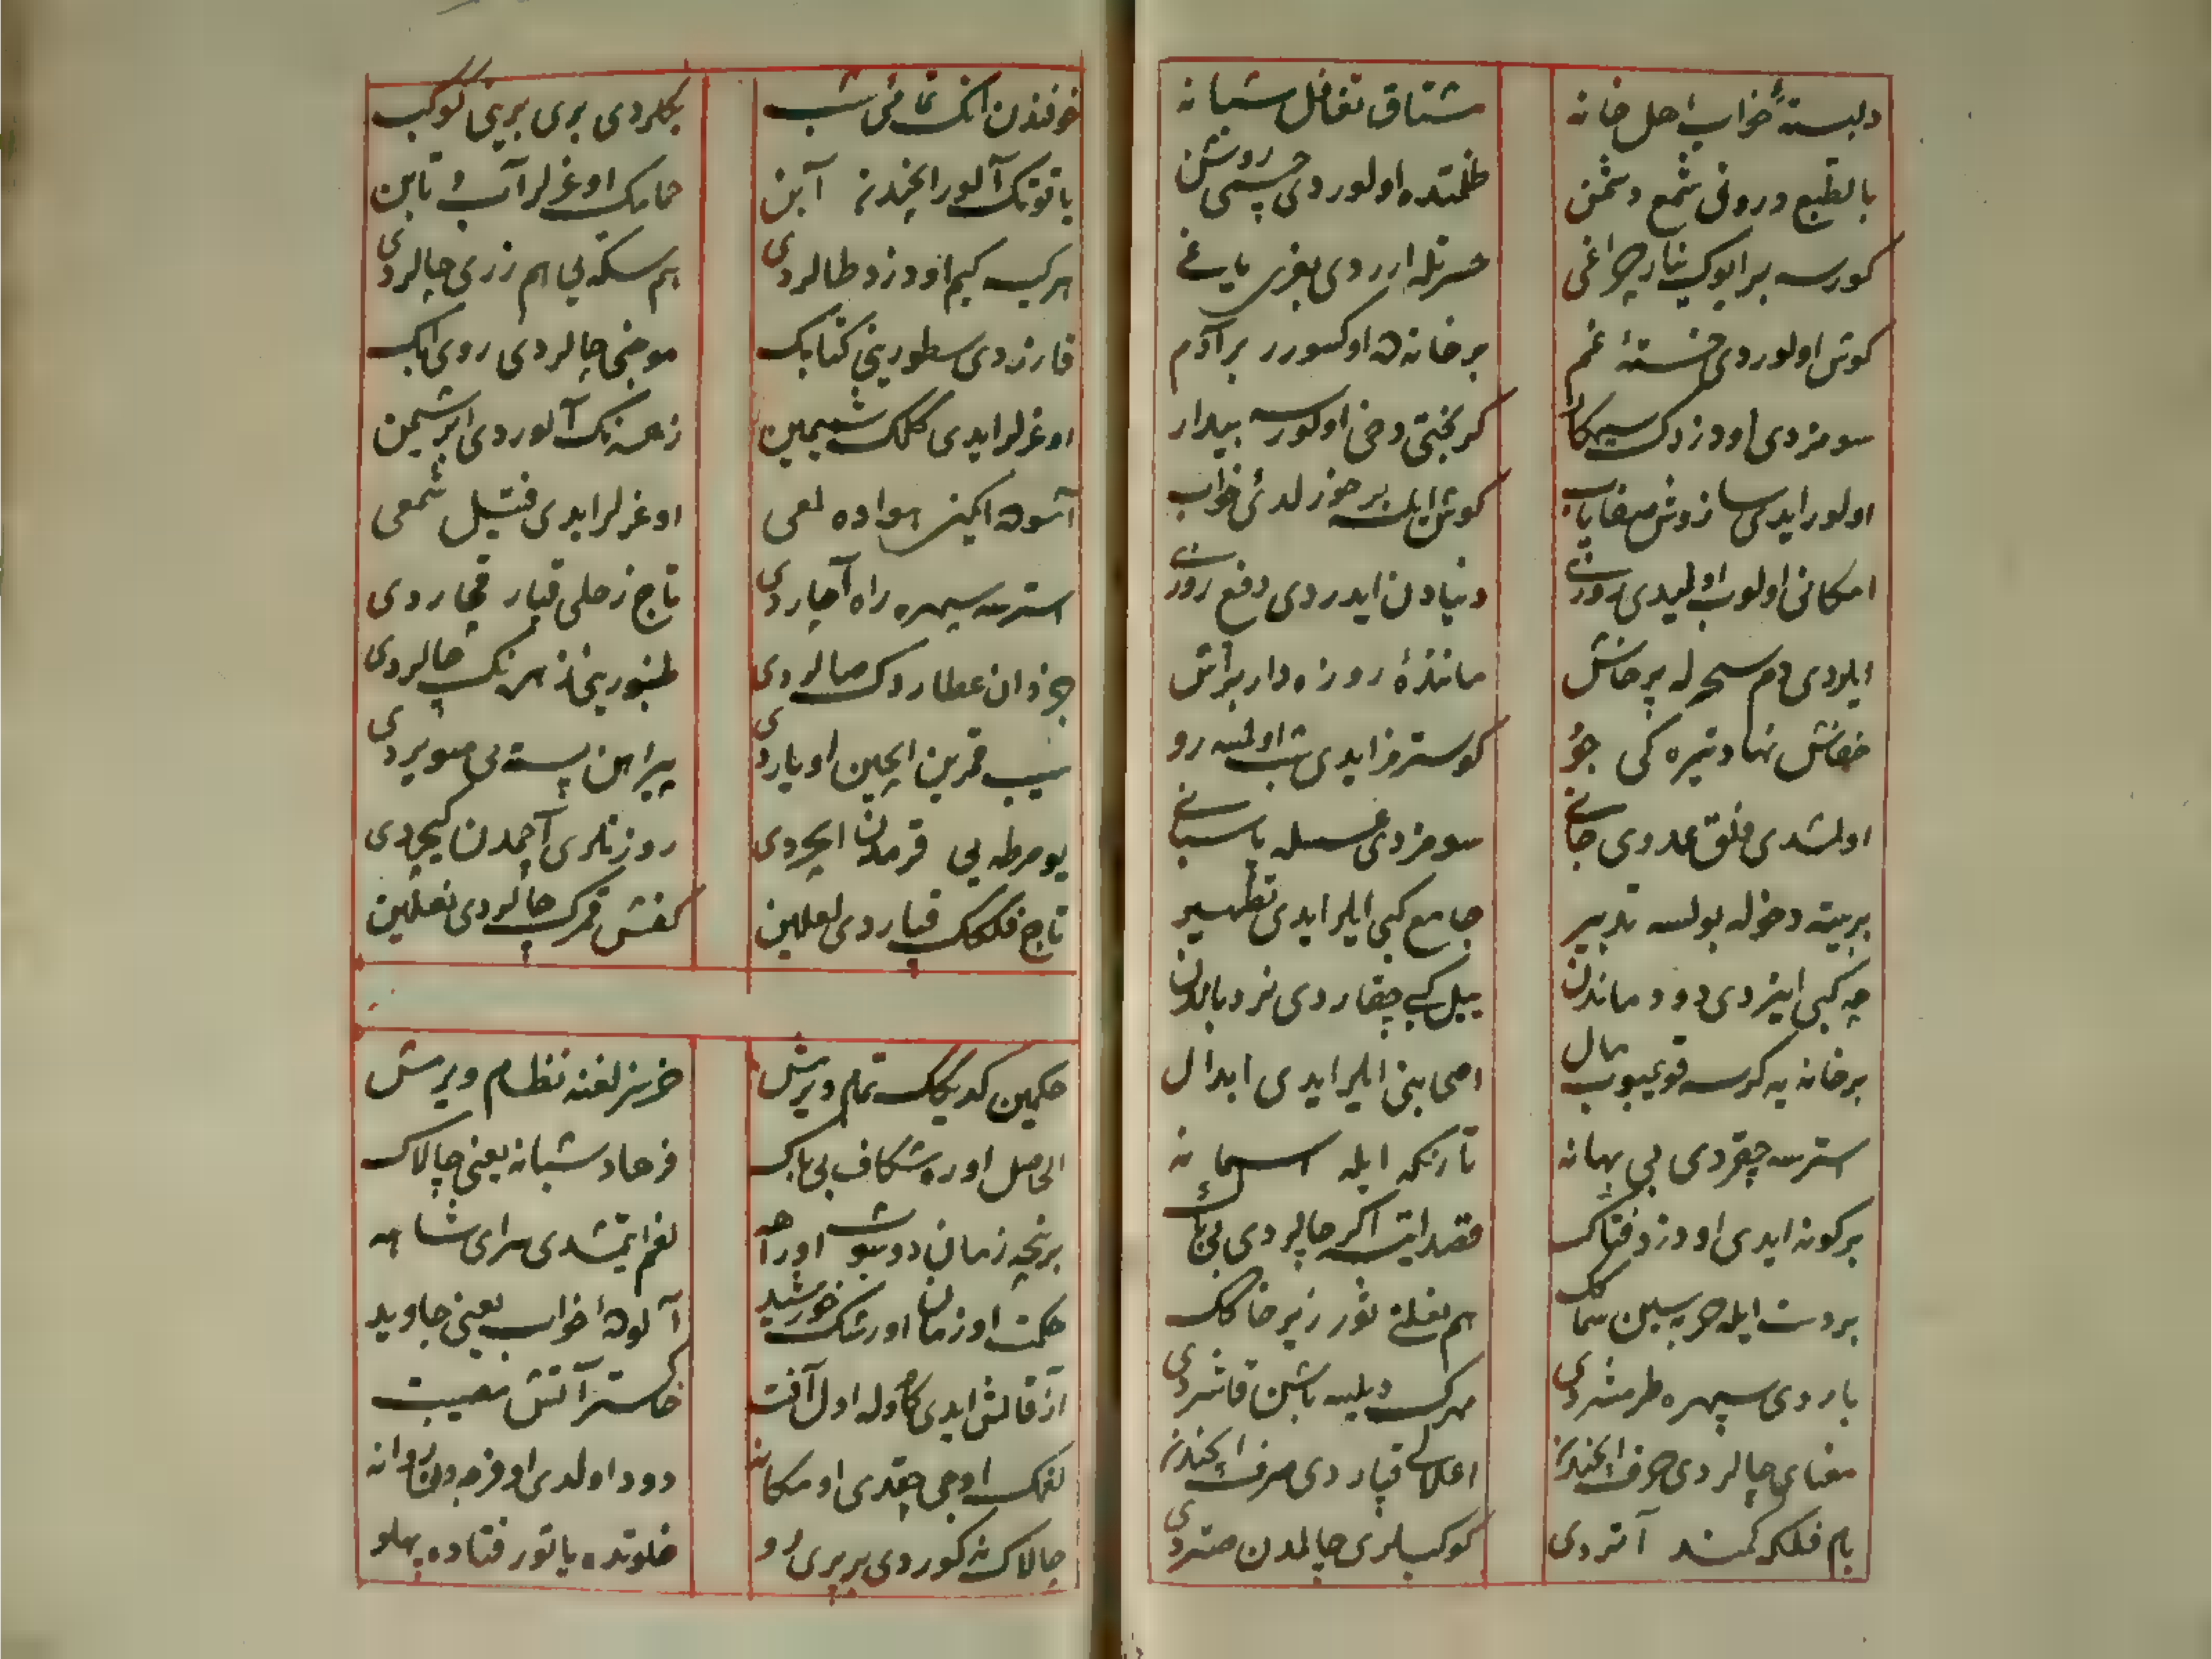 دلبستهٔ خواب اهل خانه مشتاق تغافل شبانه
بالطبع درونی شمع دشمن ظلمتده اولوردی چشمی روشن
كورسه بر ایوك ینار چراغی حسرتله اریردی یاغی
كوش اولوردی خستهٔ غم بر خانه ده اوكسورر بر آدم
سومزدی اودزدك كر بختی دخی اولورسه بیدار
اولور ایدی كوش ایلسه بر خواب
امكانی اولوب دنیادن ایدردی دفع روزن
ایلردی دم سحرله پرخاش مانندهٔ روزه دار
خفاش نهاد تیره كی جو كوسترمز ایدی شب اولمسه رو
اولمشدی خلق عدوی جانی سومزدی عسسله پاسبانی
بر بیته دخوله بولسه تدبیر جامع كبی ایلر ایدی تطهیر
چه كبی اینردی دودماندن ییل كبی چیقاردی نردباندن
بر خانه یه كرسه قویمیوب مال اصحابنی ایلر ایدی ابدال
استرسه چیقردی بی بهانه تا زنكه ایله آسمانه
بر كونه ایدی او دزد فتاك قصد ایتسه اكر چالردی بی باك
بر دست ایله حربه سین سماكك هم نعلنی ثور زیر خاكك
یاردی سپهره طرمشردی مهرك دیلسه باشین قاشردی
معنای چالردی حرف ایچندن اعلالی قپاردی صرف ایچندن
بام فلكه كمند آتردی كوكبلری چالمدن صتردی
خوفندن انك تمامئ شب بكلردی بری برینی كوكب
یاقوتك آلور ایچندن آبن حمامك اوغرلر آب و تابن
هر كیسه كیم او دزد طالردی هم سكه یی هم زری چالردی
قازردی سطورینی كتابك موجنی چالردی روی آبك
اوغرلر ایدی كلك شمیمین زهره نك آلوردی ابریشمین
آسوده ایكن هواده لمعی اوغرلر ایدی فتیل شمعی
استرسه سپهره راه آچاردی تاج زحلی قپار قچاردی
جزدان عطاردك صالردی طنبورینی زهره نك چالردی
سیب قمرین ایچین اویاردی پیراهن پسته یی صویردی
یومرطه یی قرمدن ایچردی روزنلری آچمدن كیچردی
تاج فلكك قپاردی لعلین كفش قمرك چالردی نعلین
حكمین كدیجك تمام ویرمش خرسزلغنه نظام ویرمش
الحاصل او ره شكاف بی باك فرهاد شبانه یعنی چالاك
بر نیجه زمان دوشوب او راهه لغم ایتمشدی سرای شاهه
حكمت او زمان اورشك خورشید آلودهٔ خواب یعنی جاوید
قالمش ایدی اول آفت خاكستر آتش مصیبت
لغمك اوجی چیقدی او مكانه دود اولدی او فرجه دن روانه
چالاك نه كوردی بر پری رو خلوتده یاتور فتاده پهلو